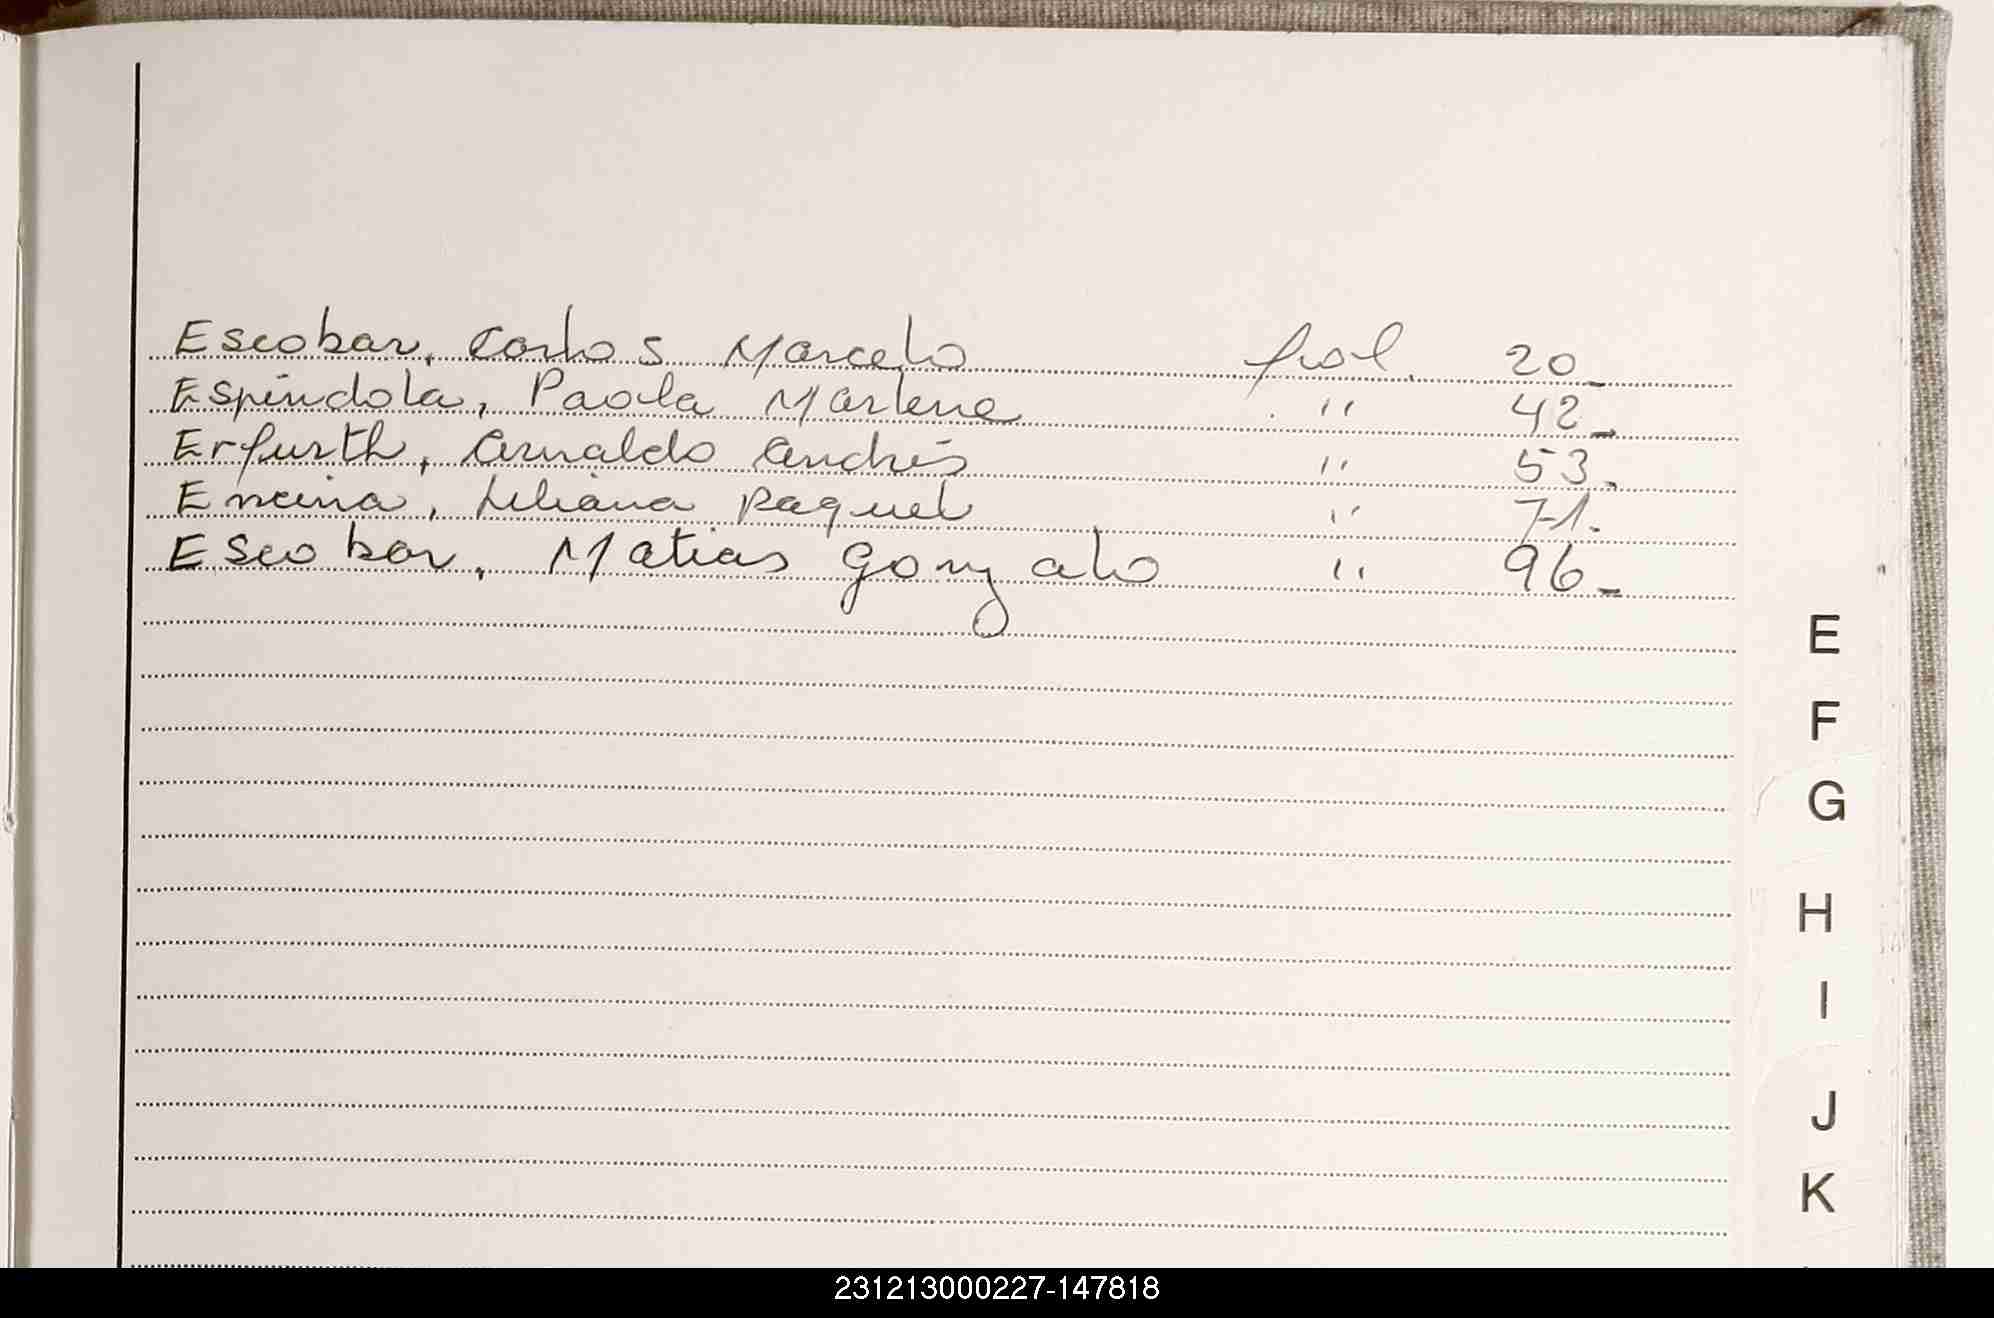 Escobar, Carlos Marcelo fol. 20_
Espíndola, Paola Marlene " 42_
Erfurth, Arnaldo Andrés " 53.
Encina, Liliana Raquel " 71.
Escobar, Matias Gonzalo " 96_
E
F
G
H
I
J
K
231213000227-147818